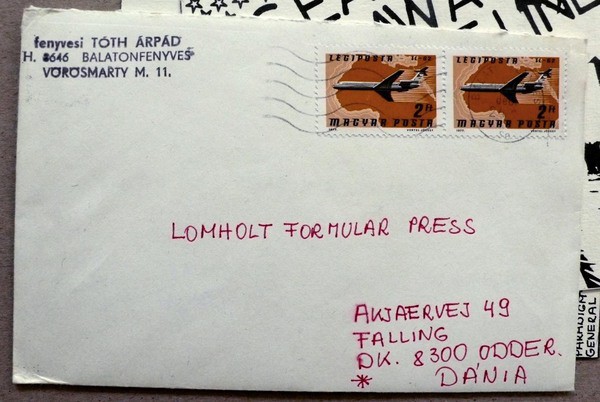 fenyvesi TÓTH ÁRPÁD
H. 8646 BALATONFENYVES
VÖRÖSMARTY M. 11.
LÉGIPOSTA
2 Ft
MAGYAR POSTA
LÉGIPOSTA
2 Ft
MAGYAR POSTA
LOMHOLT FORMULAR PRESS
AKJAERVEJ 49
FALLING
DK. 8300 ODDER.
* DÁNIA
PARADIGM
GENERAL